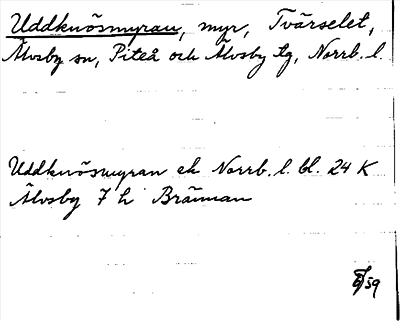 Uddknösmyran, myr, Tvärselet,
Älvsby sn, Piteå och Älvsby tg, Norrb. l.
Uddknösmyran ek Norrb. l. bl. 24 K
Älvsby 7 h Brännan
/59